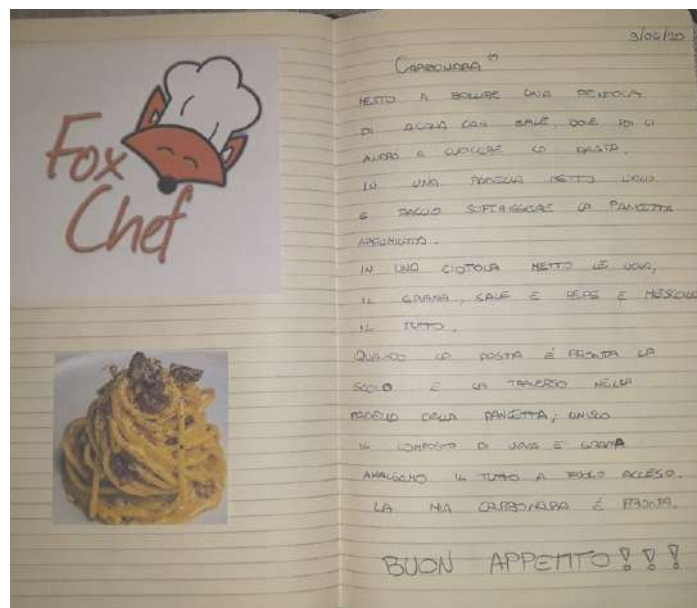 Fox
Chef
9/04/20
CARBONARA
METTO A BOLLIRE UNA PENTOLA
DI ACQUA CON SALE, DOVE POI CI
ANDRÒ A CUOCERE LA PASTA.
IN UNA PADELLA METTO L'OLIO
E FACCIO SOFFRIGGERE LA PANCETTA
AFFUMICATA.
IN UNA CIOTOLA METTO LE UOVA,
IL GRANA, SALE E PEPE E MESCOLO
IL TUTTO.
QUANDO LA PASTA È PRONTA LA
SCOLO E LA TRAVERSO NELLA
PADELLA DELLA PANCETTA, UNISCO
IL COMPOSTO DI UOVA E GRANA
AMALGAMO IL TUTTO A FUOCO ACCESO.
LA MIA CARBONARA È PRONTA.
BUON APPETITO!!!